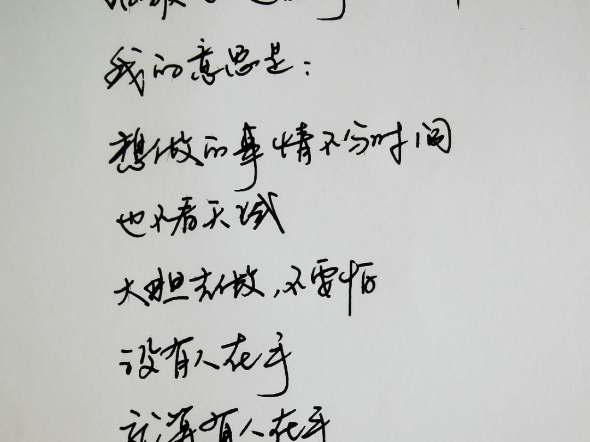 我的意思是：
想做的事情不分时间
也不看天赋
大胆去做，不要怕
没有人在乎
就算有人在乎